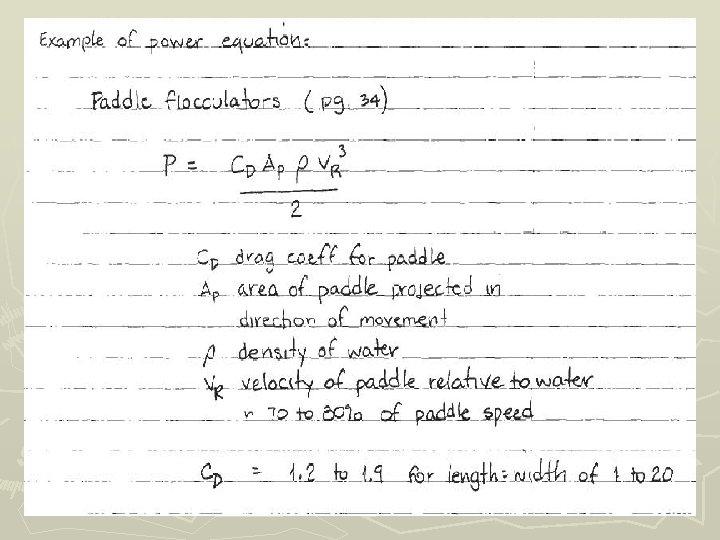 Example of power equation:
Paddle flocculators (pg. 34)
P = C_D A_P ρ V_R^3
2
C_D drag coeff for paddle
A_P area of paddle projected in
direction of movement
ρ density of water
V_R velocity of paddle relative to water
~ 70 to 80% of paddle speed
C_D = 1.2 to 1.9 for length:width of 1 to 20